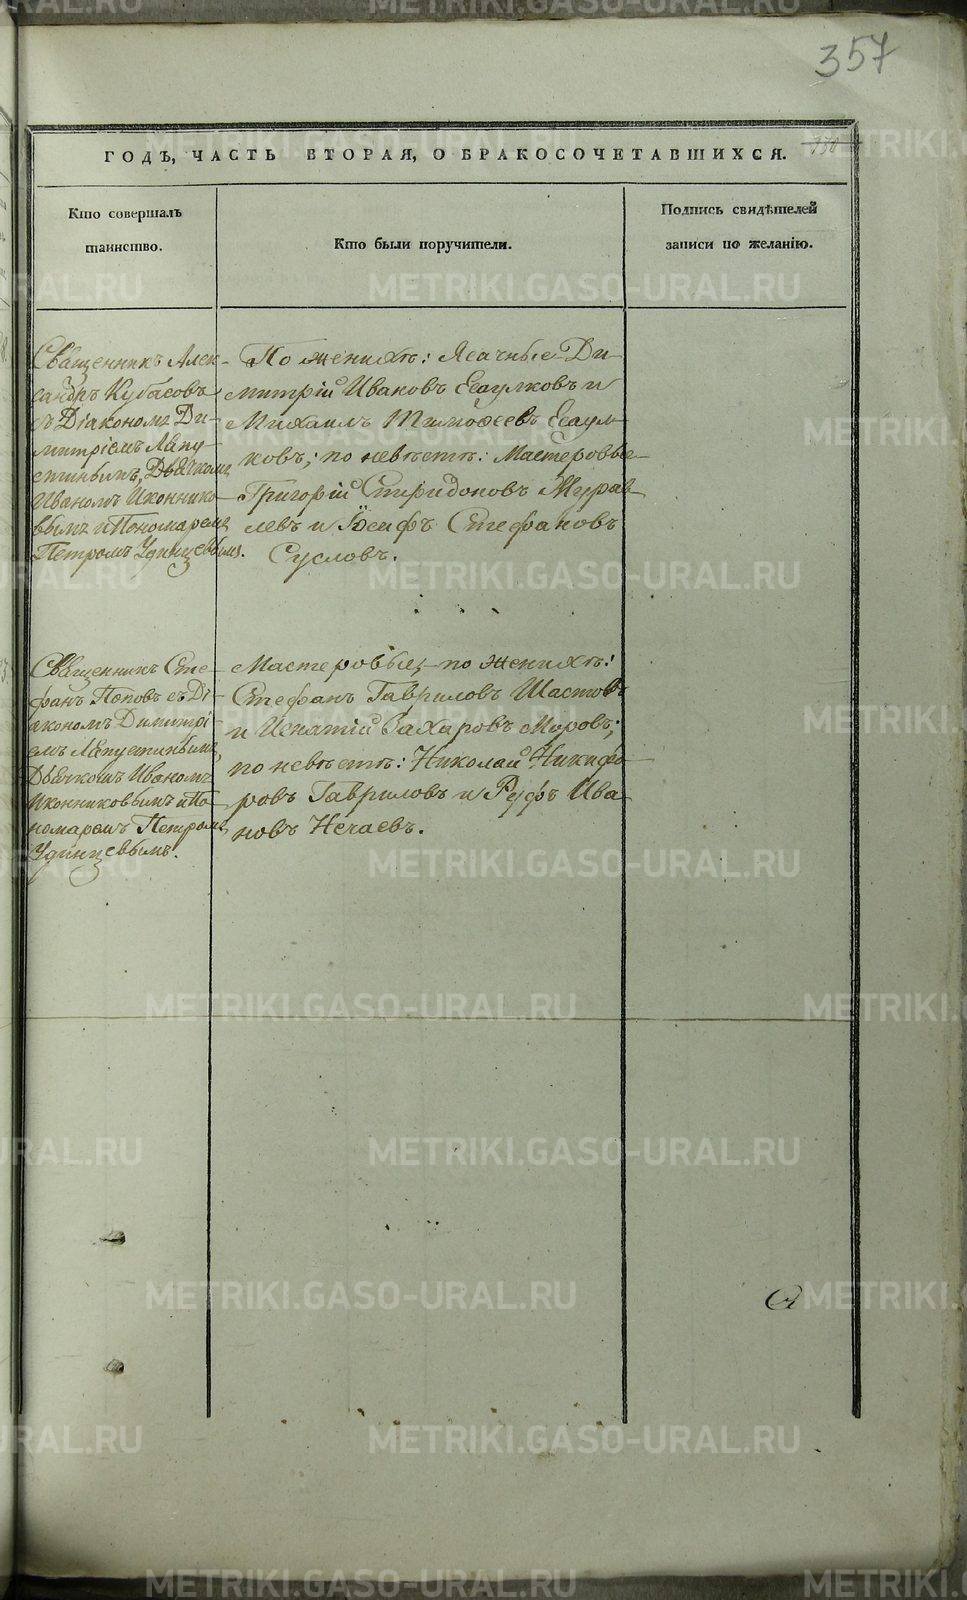 357
350
ГОДЪ, ЧАСТЬ ВТОРАЯ, О БРАКОСОЧЕТАВШИХСЯ.
Кто совершалъ
таинство.
Кто были поручители.
Подпись свидѣтелей
записи по желанію.
Священникъ Алек-
сандръ Кубасовъ
съ Діакономъ Ди-
митріемъ Лапу-
стинымъ, Дьячкомъ
Иваномъ Иконнико-
вымъ и Пономаремъ
Петромъ Удинцевымъ.
По женихѣ: Ясачные Ди-
митрій Ивановъ Есаулковъ и
Михаилъ Тимоѳеевъ Есаул-
ковъ; по невѣстѣ: Мастеровые
Григорій Спиридоновъ Журав-
левъ и Іосифъ Стефановъ
Сусловъ.
Священникъ Сте-
фанъ Поповъ съ Ді-
акономъ Димитрі-
емъ Лапустинымъ,
Дьячкомъ Иваномъ
Иконниковымъ и По-
номаремъ Петромъ
Удинцевымъ.
Мастеровые, по женихѣ:
Стефанъ Гавриловъ Шастовъ
и Игнатій Захаровъ Моровъ;
по невѣстѣ: Николай Никифо-
ровъ Гавриловъ и Руфъ Ива-
новъ Нечаевъ.
METRIKI.GASO-URAL.RU